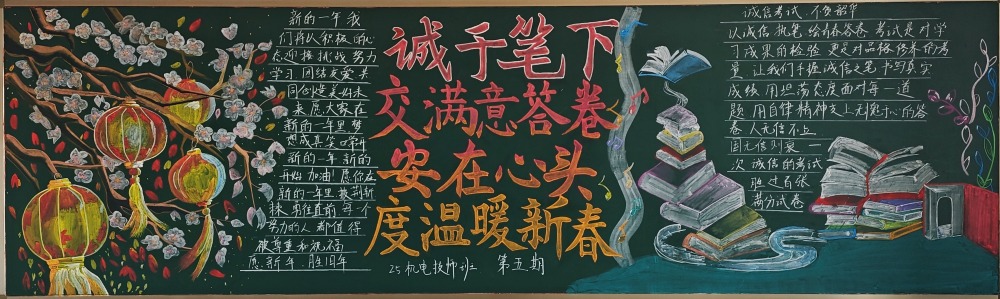 新的一年 我
们将以积极的心
态迎接挑战 努力
学习 团结友爱 共
同创造美好未
来 愿大家在
新的一年里梦
想成真 笑口常开
新的一年 新的
开始 加油! 愿你在
新的一年里披荆斩
棘 勇往直前 每一个
努力的人 都值得
被尊重和祝福
愿:新年 胜旧年
诚于笔下
交满意答卷
安在心头
度温暖新春
25机电技师班 第五期
诚信考试 不负韶华
以诚信执笔 绘青春答卷 考试是对学
习成果的检验 更是对品格修养的考
量 让我们手握诚信之笔 书写真实
成绩 用坦荡态度面对每一道
题 用自律精神交上无愧于心的答
卷 人无信不立
国无信则衰 一
次诚信的考试
胜过百张
满分试卷